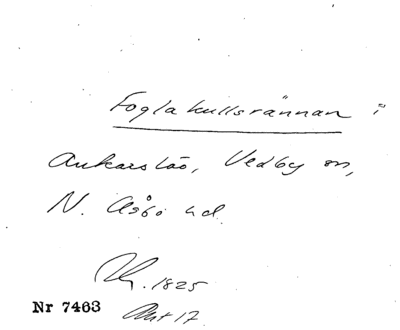 Foglakullsrännan i
Ankarslöv, Vedby sn,
N. Åsbo hd.
1825
Nr 7463
Akt 17.